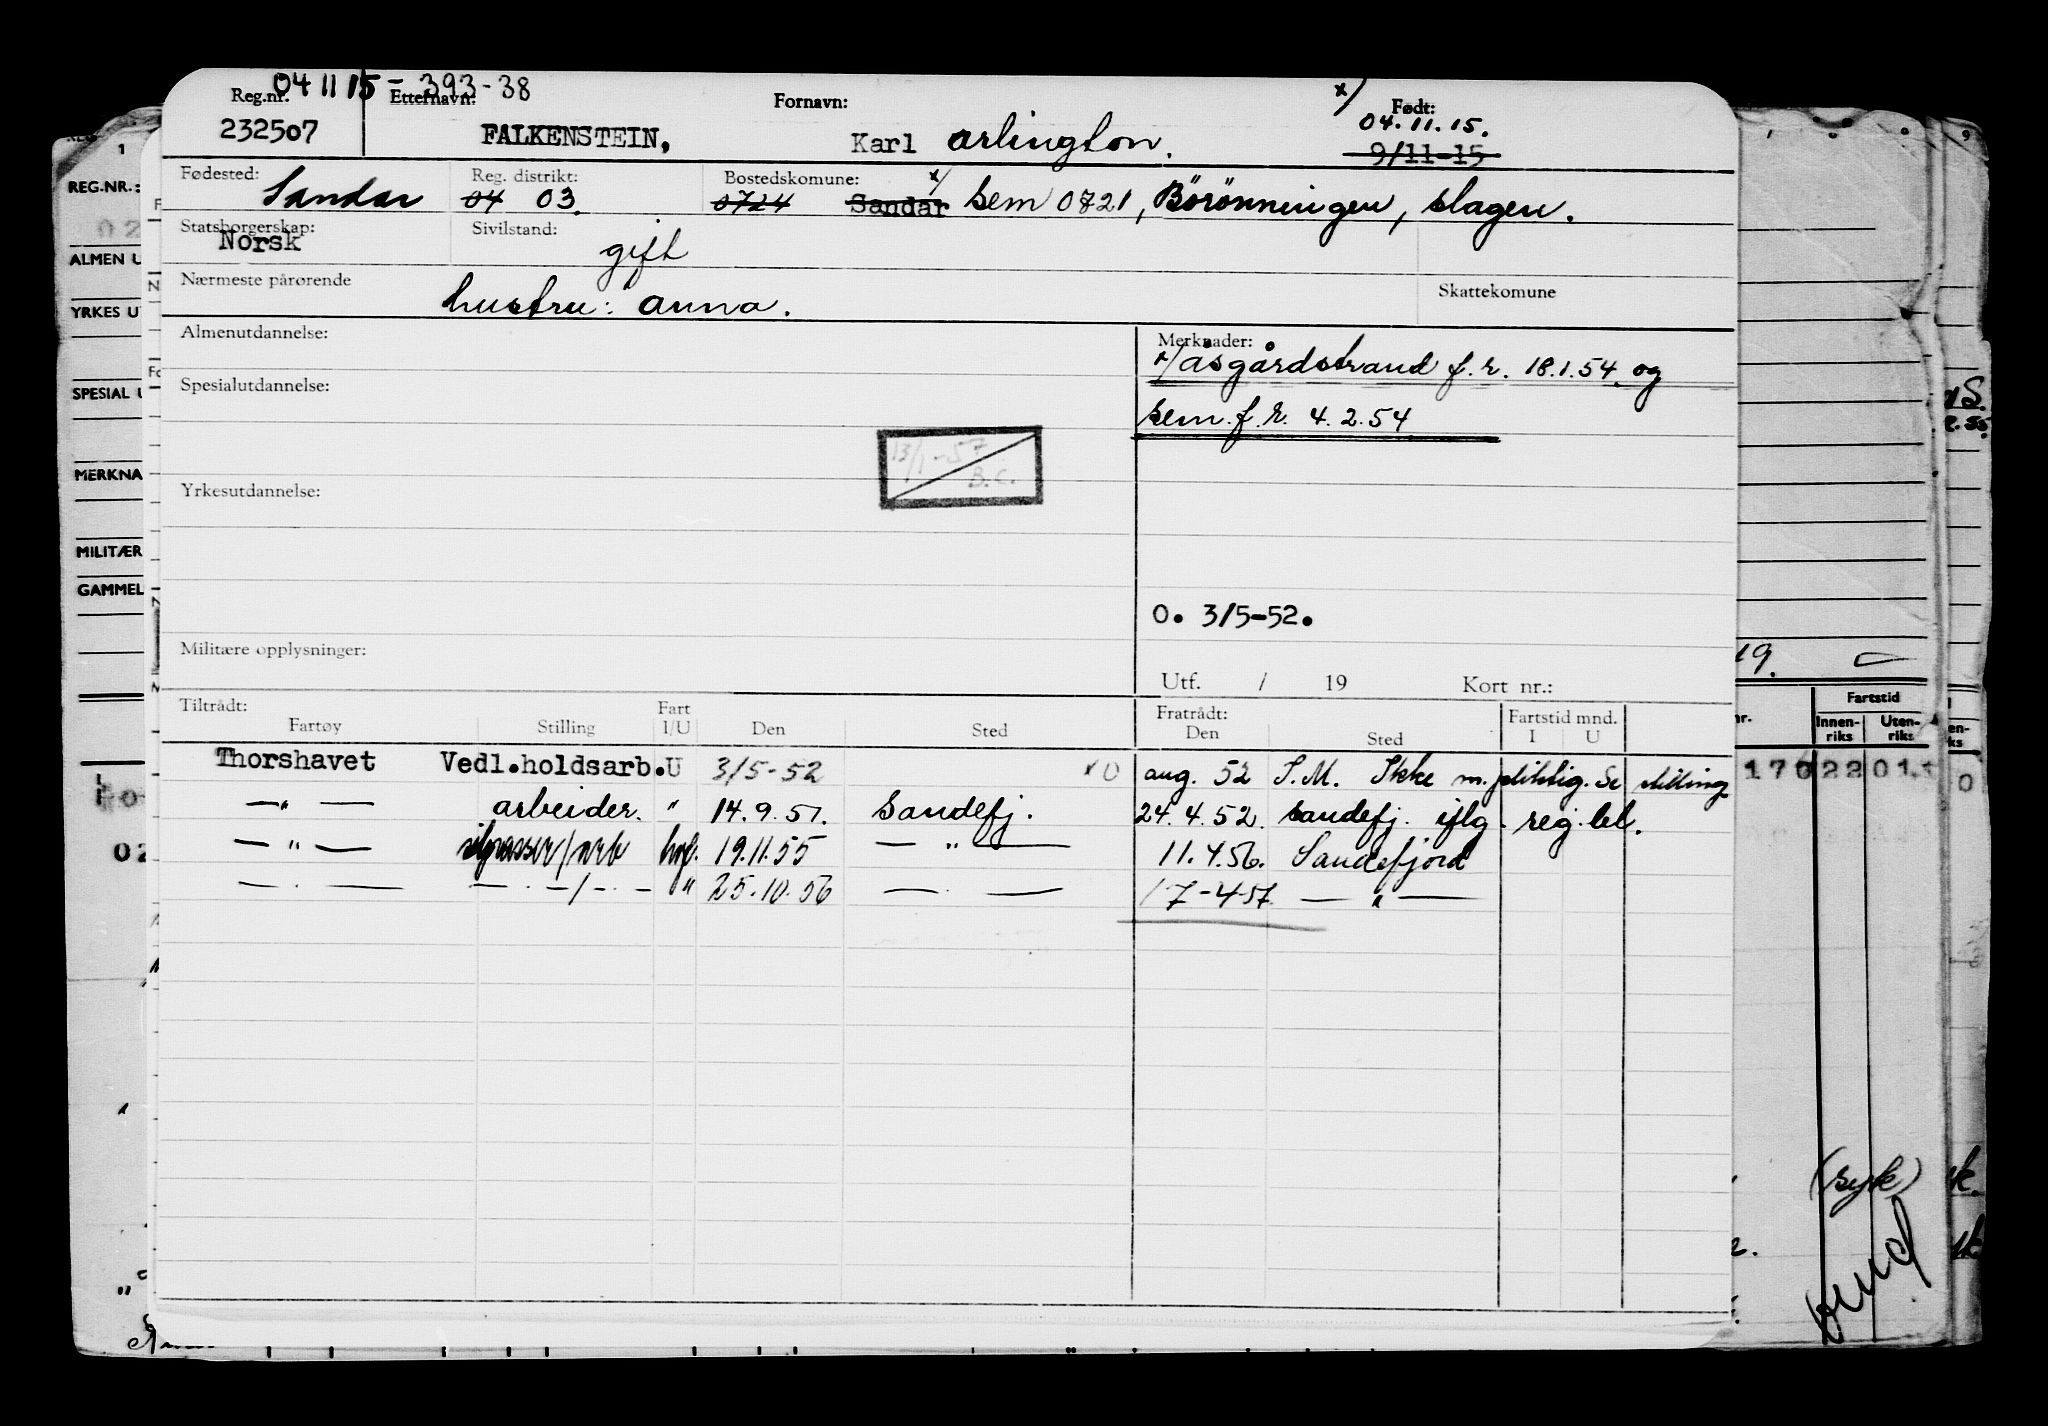 04 11 15 - 393-38
Reg.nr. Etternavn: Fornavn: x/ Født:
232507 FALKENSTEIN, Karl Arlington. 04.11.15.
9/11-15
Fødested: Reg. distrikt: Bostedskomune: x/
Sandar 04 03. 0724 Sandar Sem 0721, Börönningen, Slagen.
Statsborgerskap: Sivilstand:
Norsk gift
Nærmeste pårørende Skattekomune
hustru: Anna.
Almenutdannelse: Merknader:
x/ Åsgårdstrand f.r. 18.1.54 og
Spesialutdannelse:
Sem f.r. 4.2.54
13/1-57
B.C.
Yrkesutdannelse:
O. 3/5-52.
Militære opplysninger:
Utf. / 19 Kort nr.:
Tiltrådt: Fratrådt: Fartstid mnd.
Fartøy Stilling Fart I/U Den Sted Den Sted I U
Thorshavet Vedl.holdsarb. U 3/5-52 aug. 52 S.M. Ikke m.pliktig. Se stilling
— " — arbeider. " 14.9.51. Sandefj. 24.4.52. Sandefj. iflg. reg.bl.
— " — /arb hvf. 19.11.55 — " — 11.4.56. Sandefjord
— " — — " —/— " — " 25.10.56 — " — 17-4-57 — " —
REG.NR.:
ALMEN U
YRKES U
SPESIAL U
MERKNA
MILITÆR
GAMMEL
19.
Fartstid
Innen-riks Uten-riks
170 22 01
(syk)